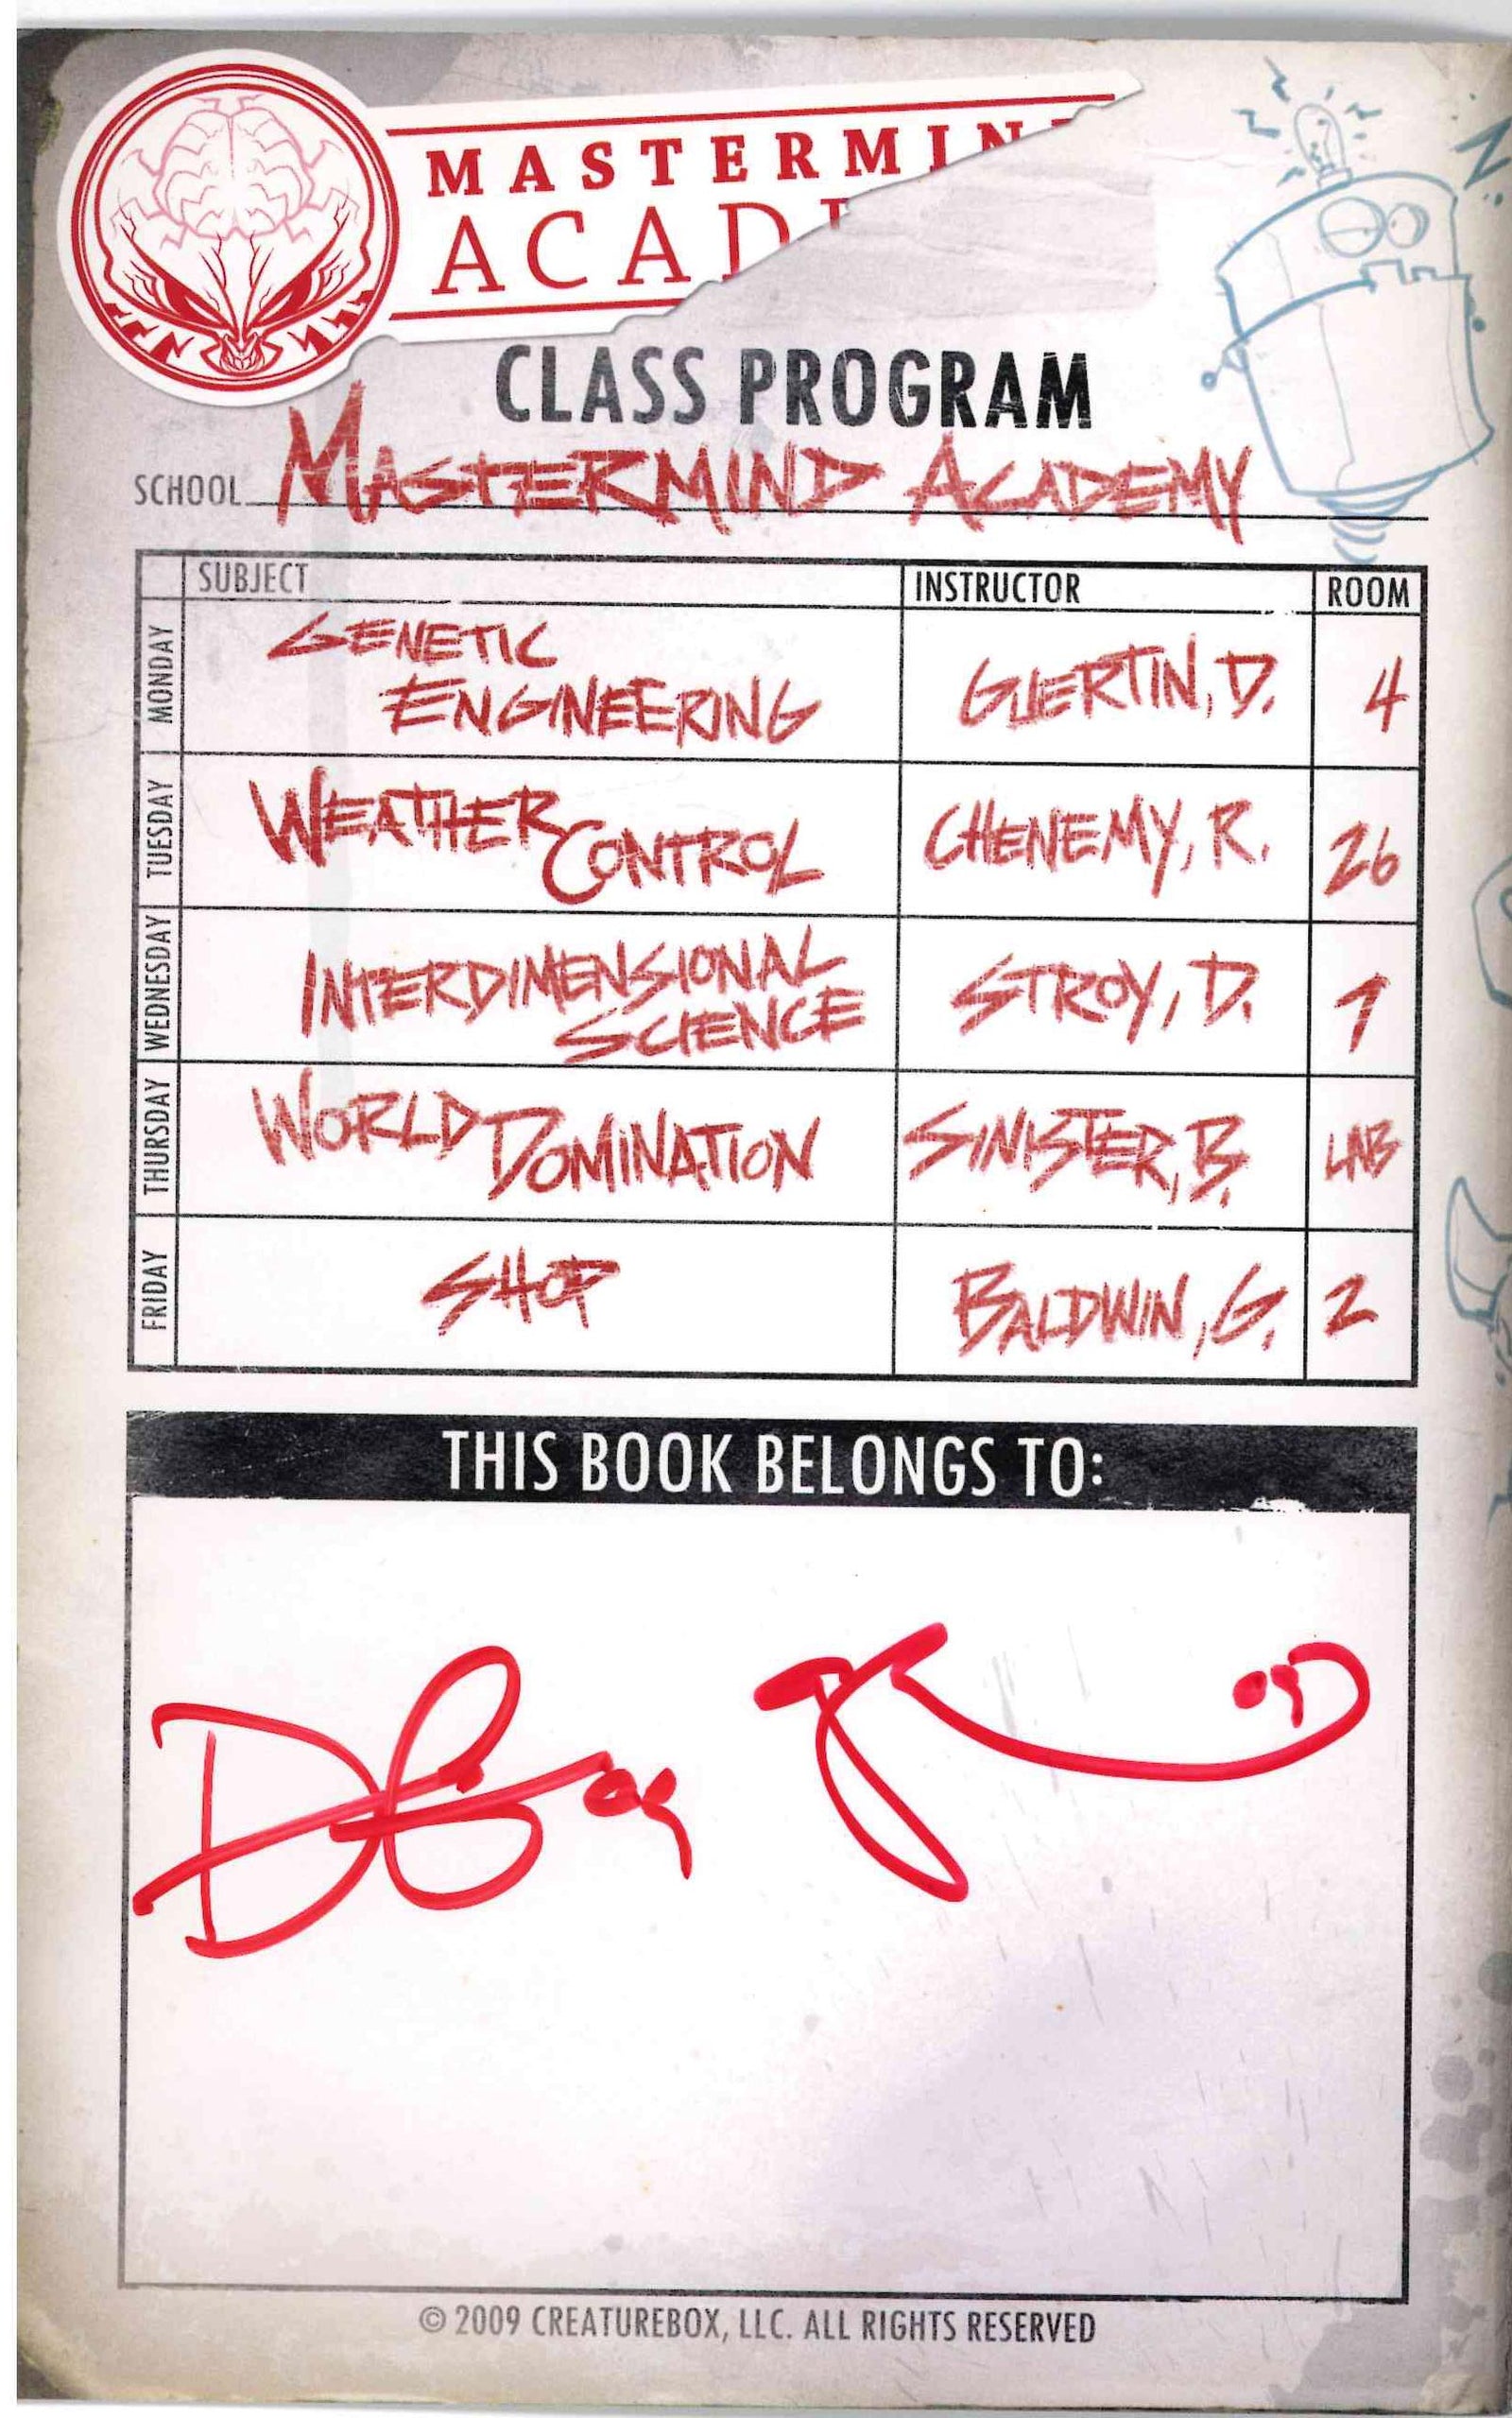 MASTERMIN
ACAD
CLASS PROGRAM
SCHOOL MASTERMIND ACADEMY
SUBJECT INSTRUCTOR ROOM
MONDAY GENETIC ENGINEERING GUERTIN, D. 4
TUESDAY WEATHER CONTROL CHENEMY, R. 26
WEDNESDAY INTERDIMENSIONAL SCIENCE STROY, D. 1
THURSDAY WORLD DOMINATION SINISTER, B. LAB
FRIDAY SHOP BALDWIN, G. 2
THIS BOOK BELONGS TO:
© 2009 CREATUREBOX, LLC. ALL RIGHTS RESERVED